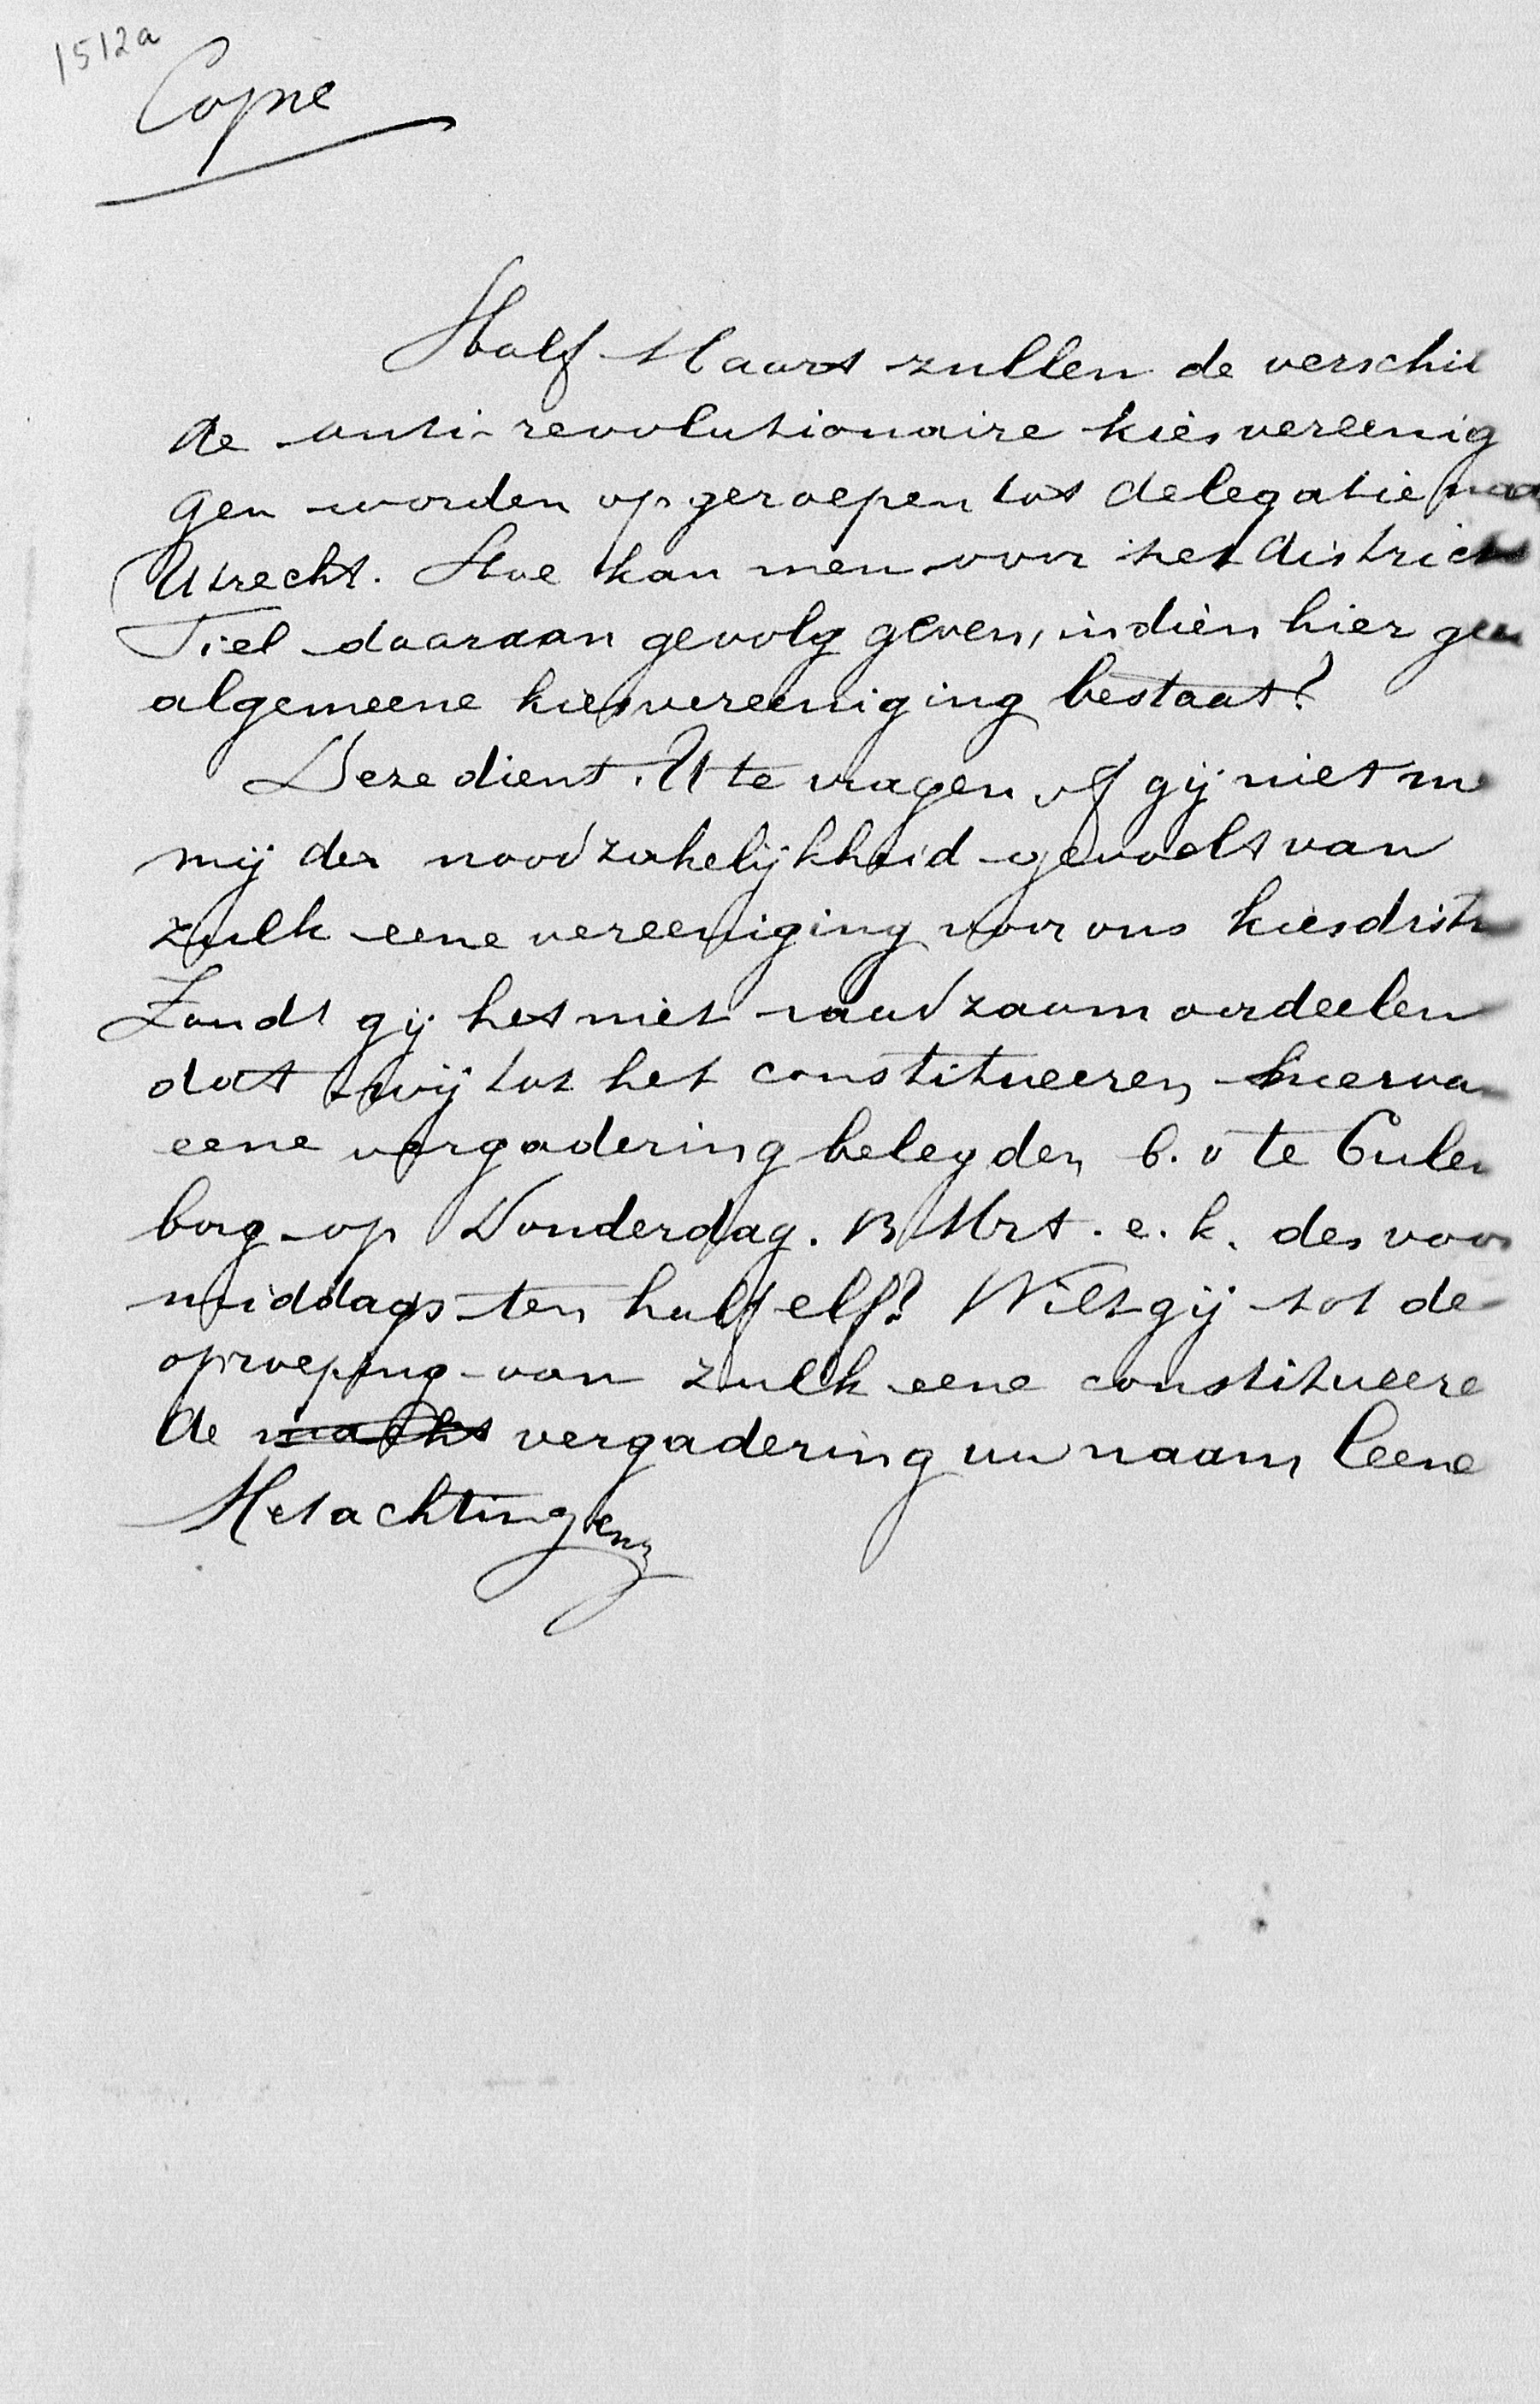 1512a
Copie
Half Maart zullen de verschil
de anti-revolutionaire kiesvereenig
gen worden opgeroepen tot delegatie naa
Utrecht. Hoe kan men voor het district
Tiel daaraan gevolg geven, indien hier geen
algemeene kiesvereeniging bestaat?
Deze dient U te vragen of gij niet m
mij de noodzakelijkheid gevoelt van
zulk eene vereeniging voor ons kiesdistr
Zoudt gij het niet raadzaam oordeelen
dat wij tot het constitueeren hierva
eene vergadering belegden b.v te Culen
borg op Donderdag. 13 Mrt. e.k. des voor
middags ten half elf? Wilt gij tot de
oproeping van zulk eene constitueere
de macht vergadering uw naam leene
Met achting enz